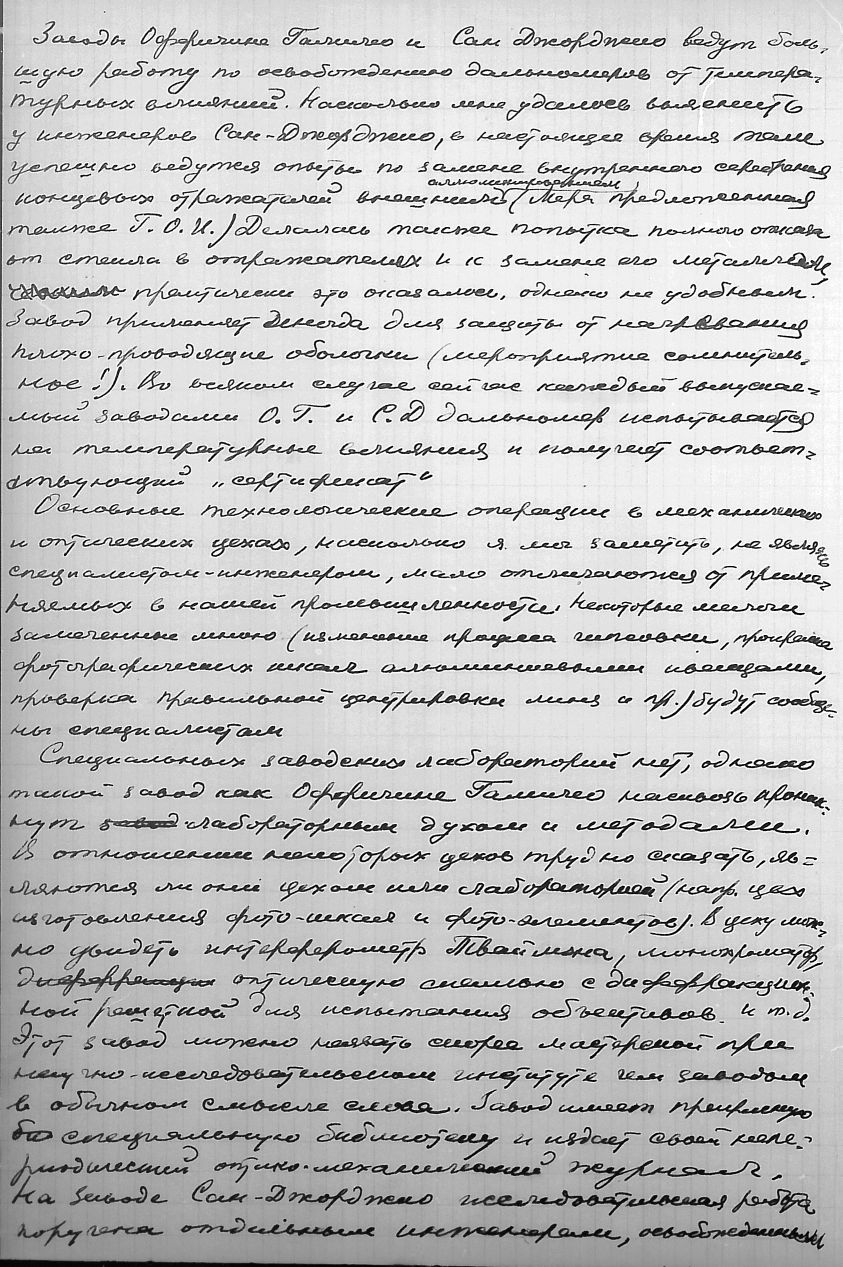 Заводы Оффичине Галилео и Сан Джорджио ведут боль-
шую работу по освобождению дальномеров от темпера-
турных влияний. Насколько мне удалось выяснить
у инженеров Сан-Джорджио, в настоящее время там
успешно ведутся опыты по замене внутреннего серебрения
алюминированием
концевых отражателей внешним (Мера предложенная
также Г.О.И.) Делалась также попытка полного отказа
от стекла в отражателях и к замене его металлом,
практически это оказалось, однако не удобным.
Завод применяет иногда для защиты от нагревания
плохо-проводящие оболочки (мероприятие сомнитель-
ное!). Во всяком случае сейчас каждый выпускае-
мый заводами О.Г. и С.Д дальномер испытывается
на температурные влияния и получает соответ-
ствующий „сертификат“
Основные технологические операции в механических
и оптических цехах, насколько я мог заметить, не являясь
специалистом-инженером, мало отличаются от приме-
няемых в нашей промышленности. Некоторые мелочи
замеченные мною (изменение процесса гипсовки,
фотографических шкал алюминиевыми
проверка правильной центрировки линз и пр.) будут сообще-
ны специалистам
Специальных заводских лабораторий нет, однако
такой завод как Оффичине Галилео насквозь проник-
нут завод лабораторным духом и методами.
В отношении некоторых цехов трудно сказать, яв-
ляются ли они цехом или лабораторией (напр. цех
изготовления фото-шкал и фото-элементов). В цеху мож-
но увидеть интерферометр Тваймана, монохроматор,
дифракции оптическую скамью с диффракцион-
ной решеткой для испытания объективов и т.д.
Этот завод можно назвать скорее мастерской при
научно-исследовательском институте чем заводом
в обычном смысле слова. Завод имеет прекрасную
би специальную библиотеку и издает свой пе-
риодический оптико-механический журнал.
На заводе Сан-Джорджио исследовательская работа
поручена отдельным инженерам, освобожденным